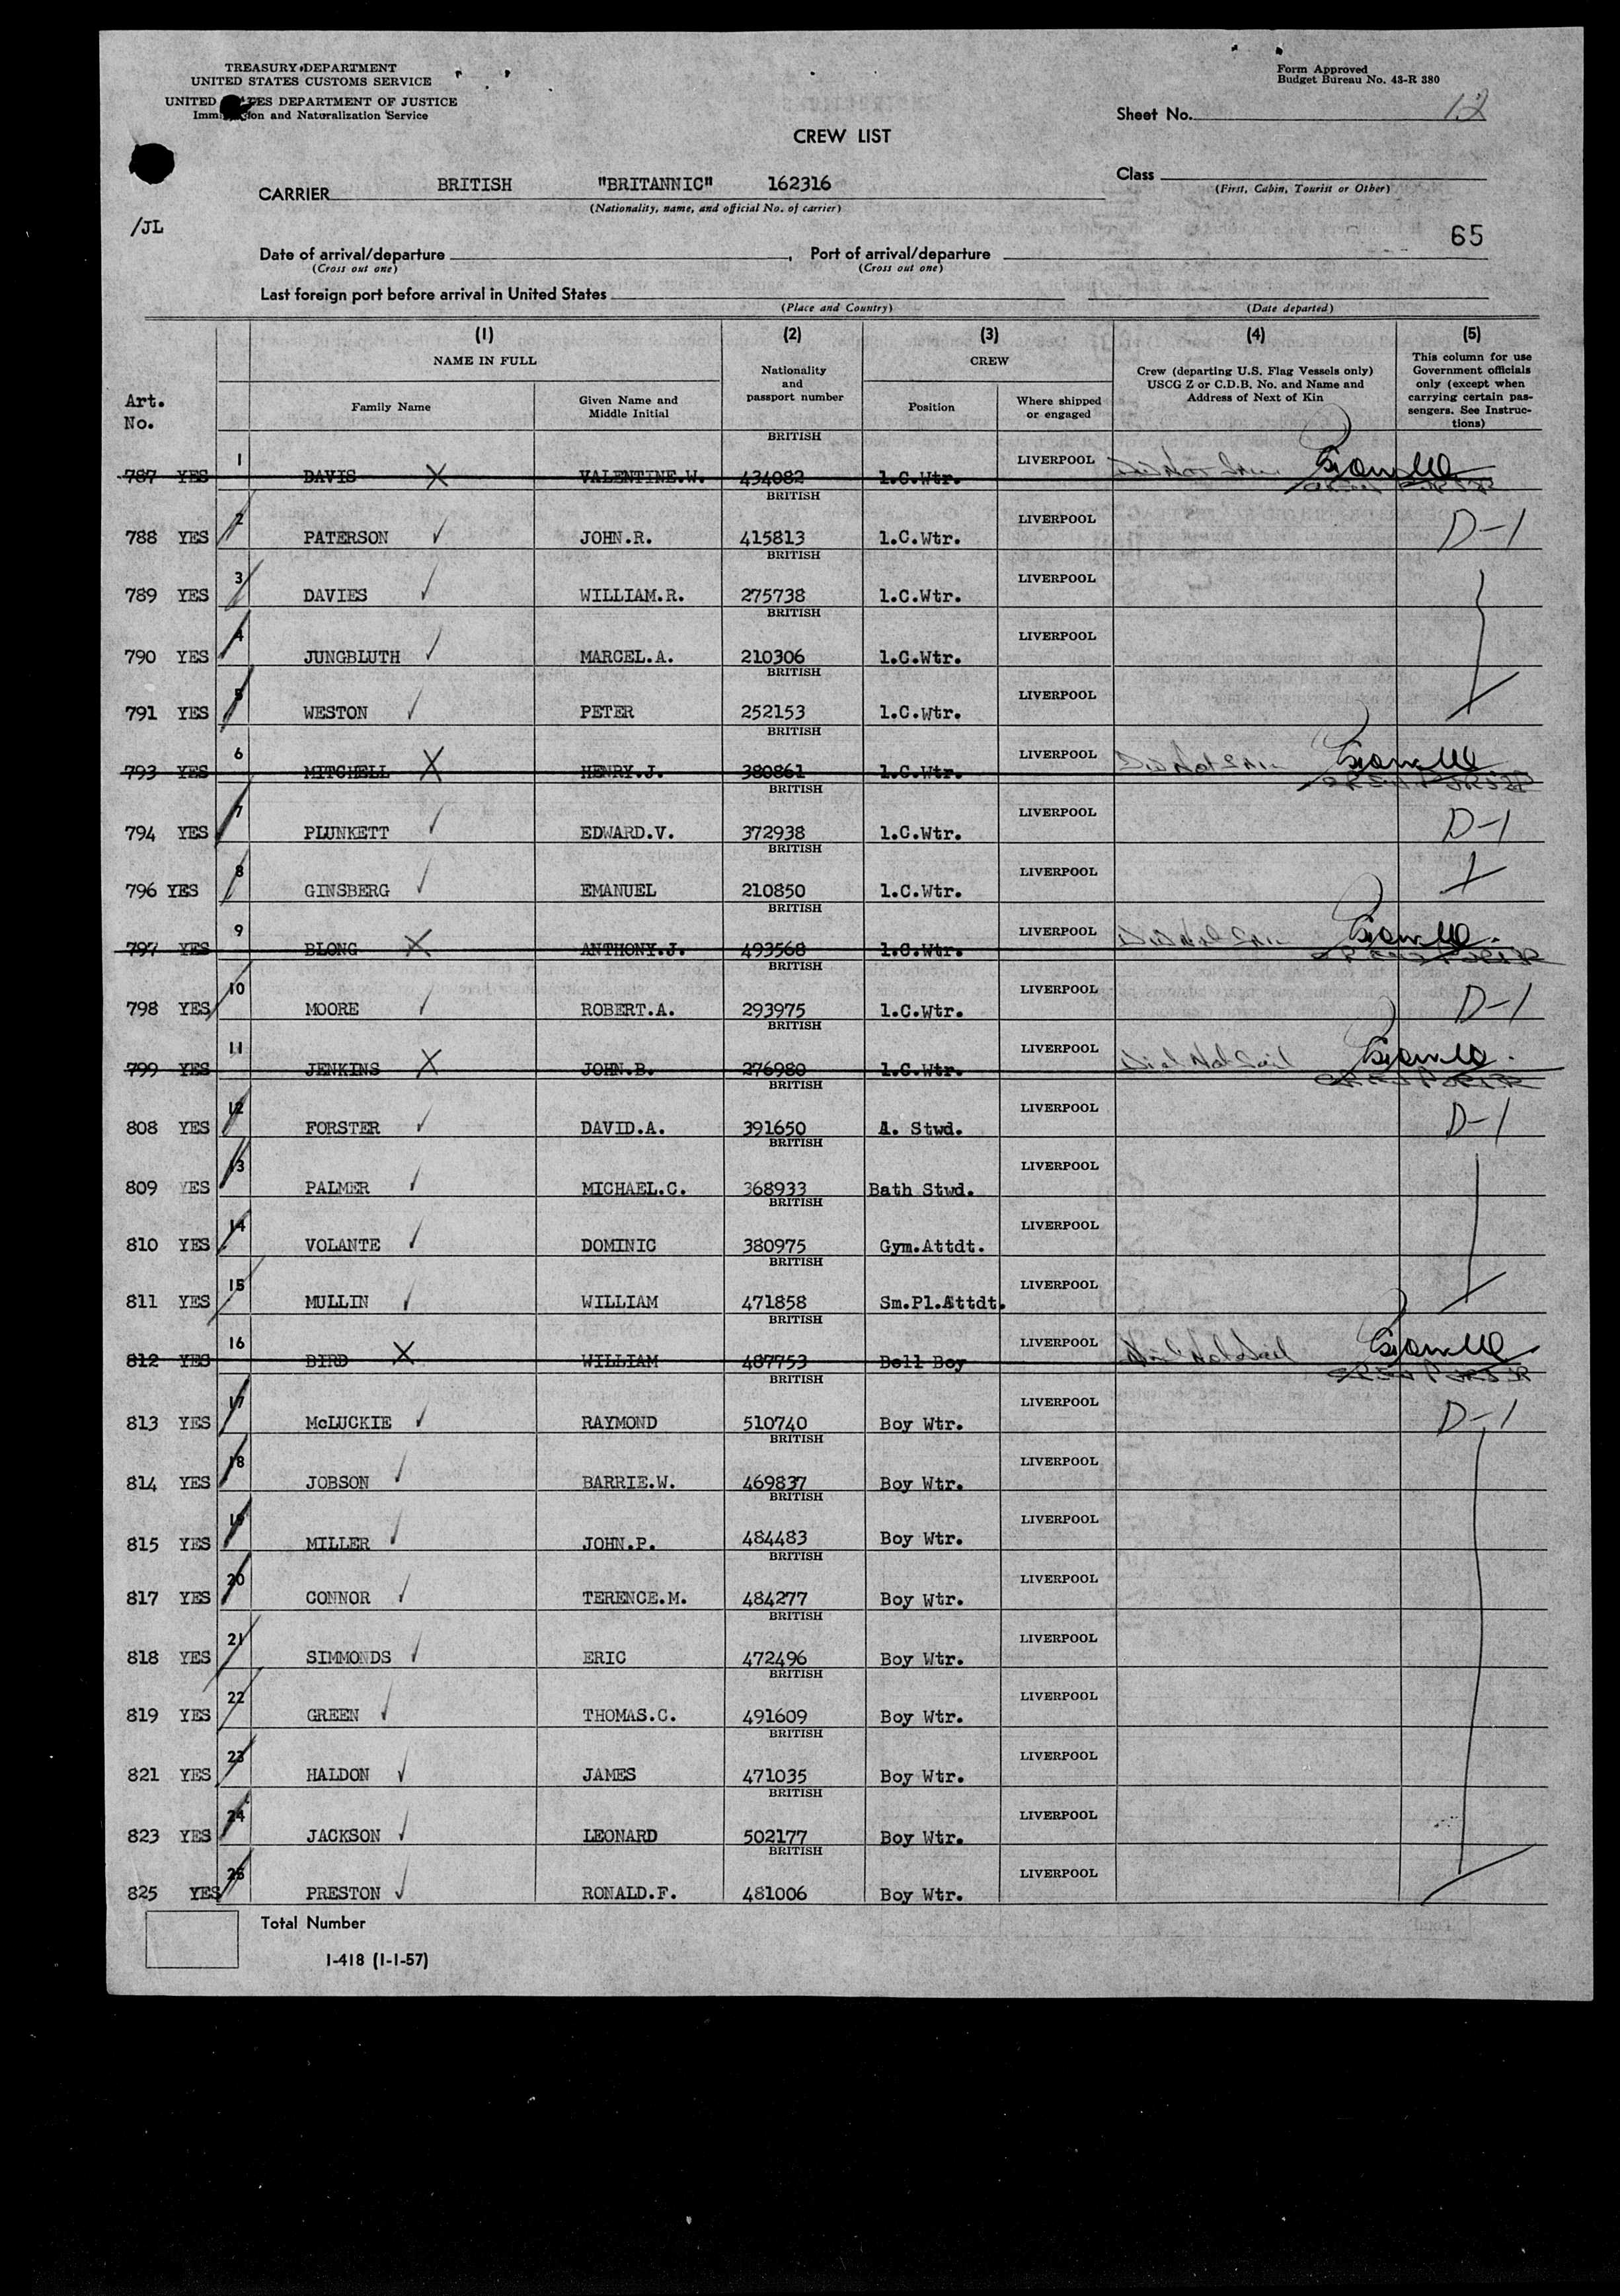 TREASURY DEPARTMENT
UNITED STATES CUSTOMS SERVICE
UNITED STATES DEPARTMENT OF JUSTICE
Immigration and Naturalization Service
Form Approved
Budget Bureau No. 43-R 380
Sheet No. 12
CREW LIST
Class
(First, Cabin, Tourist or Other)
CARRIER BRITISH "BRITANNIC" 162316
(Nationality, name, and official No. of carrier)
/JL
65
Date of arrival/departure , Port of arrival/departure
(Cross out one) (Cross out one)
Last foreign port before arrival in United States
(Place and Country) (Date departed)
(1) (2) (3) (4) (5)
NAME IN FULL Nationality and passport number CREW Crew (departing U.S. Flag Vessels only) USCG Z or C.D.B. No. and Name and Address of Next of Kin This column for use Government officials only (except when carrying certain passengers. See Instructions)
Art. No. Family Name Given Name and Middle Initial Position Where shipped or engaged
787 YES 1 DAVIS X VALENTINE.W. BRITISH 434082 1.C.Wtr. LIVERPOOL Did Not Sail
788 YES 2 PATERSON ✓ JOHN.R. BRITISH 415813 1.C.Wtr. LIVERPOOL D-1
789 YES 3 DAVIES ✓ WILLIAM.R. BRITISH 275738 1.C.Wtr. LIVERPOOL
790 YES 4 JUNGBLUTH ✓ MARCEL.A. BRITISH 210306 1.C.Wtr. LIVERPOOL
791 YES 5 WESTON ✓ PETER BRITISH 252153 1.C.Wtr. LIVERPOOL
793 YES 6 MITCHELL X HENRY.J. BRITISH 380861 1.C.Wtr. LIVERPOOL Did Not Sail
794 YES 7 PLUNKETT ✓ EDWARD.V. BRITISH 372938 1.C.Wtr. LIVERPOOL D-1
796 YES 8 GINSBERG ✓ EMANUEL BRITISH 210850 1.C.Wtr. LIVERPOOL
797 YES 9 BLONG X ANTHONY.J. BRITISH 493568 1.C.Wtr. LIVERPOOL Did Not Sail
798 YES 10 MOORE ✓ ROBERT.A. BRITISH 293975 1.C.Wtr. LIVERPOOL D-1
799 YES 11 JENKINS X JOHN.B. BRITISH 276980 1.C.Wtr. LIVERPOOL Did Not Sail
808 YES 12 FORSTER ✓ DAVID.A. BRITISH 391650 A. Stwd. LIVERPOOL D-1
809 YES 13 PALMER ✓ MICHAEL.C. BRITISH 368933 Bath Stwd. LIVERPOOL
810 YES 14 VOLANTE ✓ DOMINIC BRITISH 380975 Gym.Attdt. LIVERPOOL
811 YES 15 MULLIN ✓ WILLIAM BRITISH 471858 Sm.Pl.Attdt. LIVERPOOL
812 YES 16 BIRD X WILLIAM BRITISH 487753 Bell Boy LIVERPOOL Did Not Sail
813 YES 17 McLUCKIE ✓ RAYMOND BRITISH 510740 Boy Wtr. LIVERPOOL D-1
814 YES 18 JOBSON ✓ BARRIE.W. BRITISH 469837 Boy Wtr. LIVERPOOL
815 YES 19 MILLER ✓ JOHN.P. BRITISH 484483 Boy Wtr. LIVERPOOL
817 YES 20 CONNOR ✓ TERENCE.M. BRITISH 484277 Boy Wtr. LIVERPOOL
818 YES 21 SIMMONDS ✓ ERIC BRITISH 472496 Boy Wtr. LIVERPOOL
819 YES 22 GREEN ✓ THOMAS.C. BRITISH 491609 Boy Wtr. LIVERPOOL
821 YES 23 HALDON ✓ JAMES BRITISH 471035 Boy Wtr. LIVERPOOL
823 YES 24 JACKSON ✓ LEONARD BRITISH 502177 Boy Wtr. LIVERPOOL
825 YES 25 PRESTON ✓ RONALD.F. BRITISH 481006 Boy Wtr. LIVERPOOL
Total Number
I-418 (1-1-57)